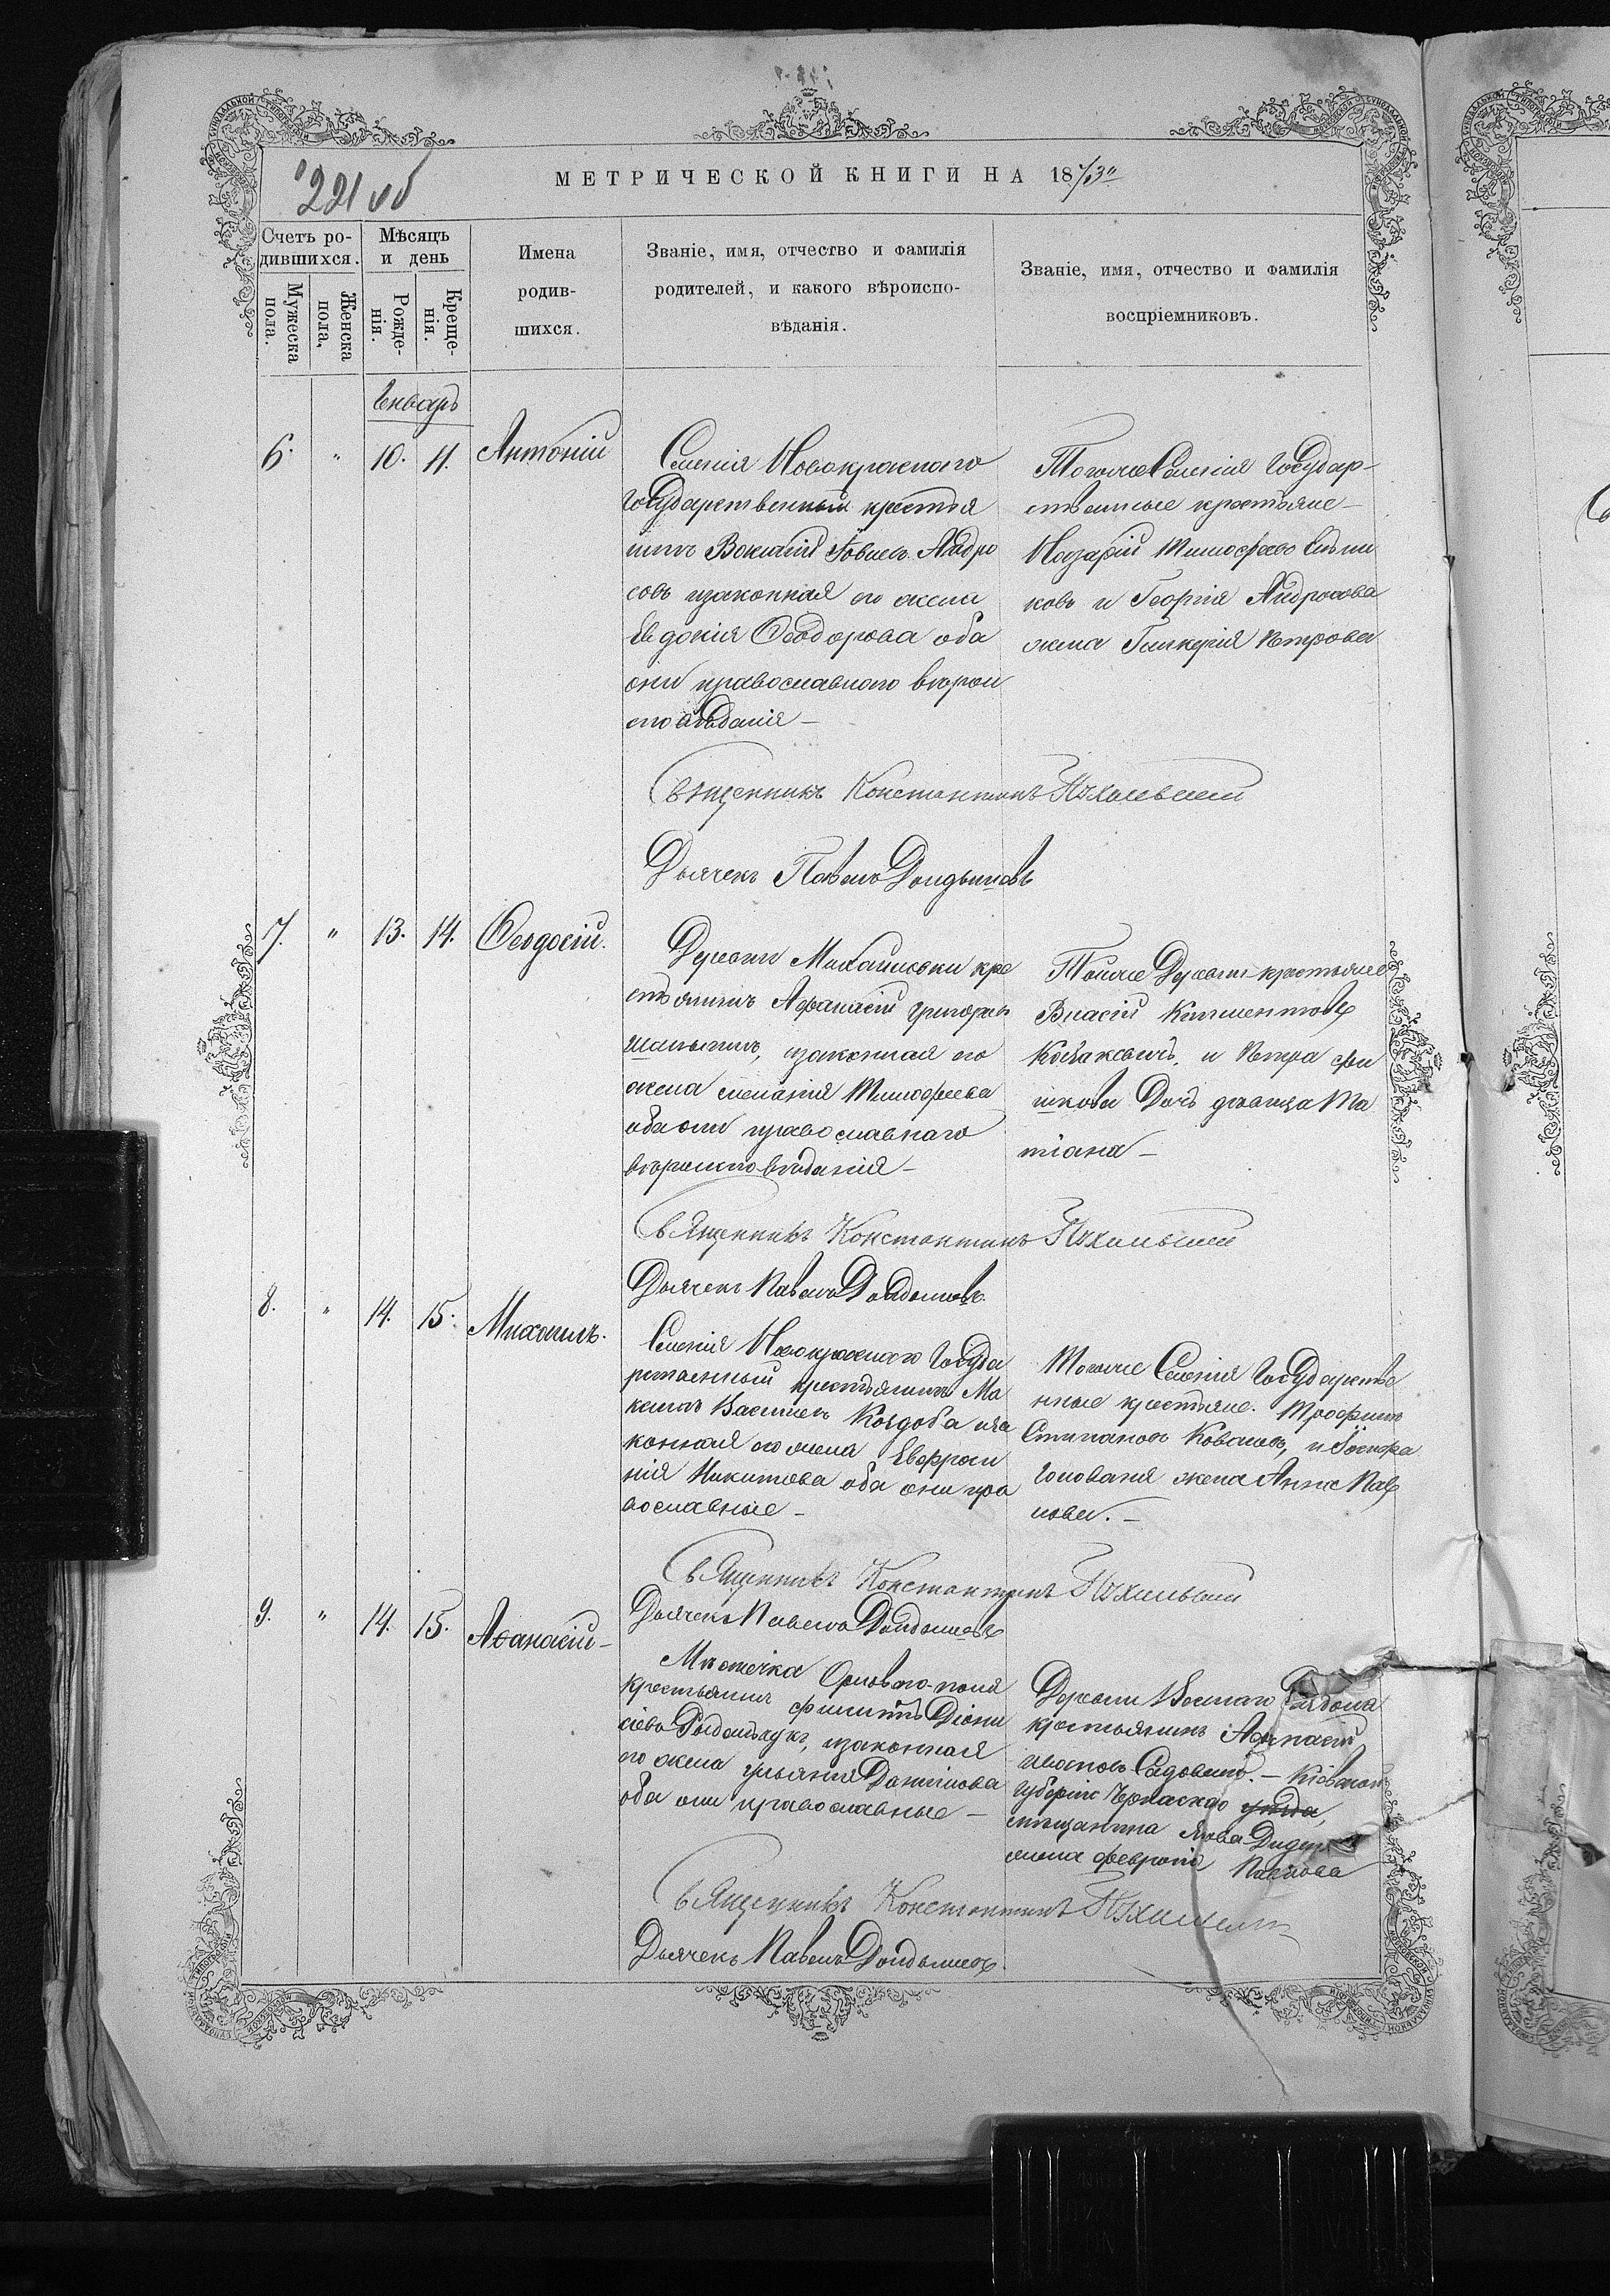 221 об
МЕТРИЧЕСКОЙ КНИГИ НА 1873"
Счетъ ро-
дившихся.
Мужеска
пола.
Женска
пола,
Мѣсяцъ
и день
Рожде-
нія.
Креще-
нія.
Имена
родив-
шихся.
Званіе, имя, отчество и фамилія
родителей, и какого вѣроиспо-
вѣданія.
Званіе, имя, отчество и фамилія
воспріемниковъ.
Январь
6. " 10. 11. Антоній
Селенія Новокраснаго
государственный крестья
нинъ Андро
совъ изаконная его жена
Евдокія Ѳеодорова оба
они православнаго вѣрои
споведанія –
Тогоже Селенія Государ-
ственные крестьяне –
Назарій Тимофеевъ
ковъ и Георгія Андросова
жена Гликерія Петрова
Священникъ Константинъ
Дьячекъ Павелъ
7. " 13. 14. Ѳеодосій.
Деревни Михайловки кре
стьянинъ Афанасій Григорьев
изаконная его
жена меланія Тимофеева
оба они православнаго
вѣроисповѣданія –
Тойже Деревни крестьяне
Власій Климентов
и Петра фи
шкова Дочь девица Та
тіана –
Священникъ Константинъ
Дьячекъ Павелъ
8. " 14. 15. Михаилъ.
Селенія Новокраснаго Госуда
рственный крестьянинъ Ма
ксимъ Васильевъ Коздоба иза
конная его жена Евфроси
нія Никитова оба они пра
вославные –
Тогоже Селенія Государстве
нные крестьяне. Трофимъ
Степановъ Ковалевъ, и Іосифа
Голованя жена Анна Пав
лова. –
Священникъ Константинъ
Дьячекъ Павелъ
9. " 14. 15. Аѳанасій –
Мѣстечка Орловаго-поля
крестьянинъ филиппъ Діони
сіевъ изаконная
его жена ульянія Даниилова
оба они православные –
Деревни
крестьянинъ Аѳанасій
ивановъ – Кіевской
губерніи Черкаскаго уѣзда,
мещанина
жена февронія Павлова
Священникъ Константинъ
Дьячекъ Павелъ